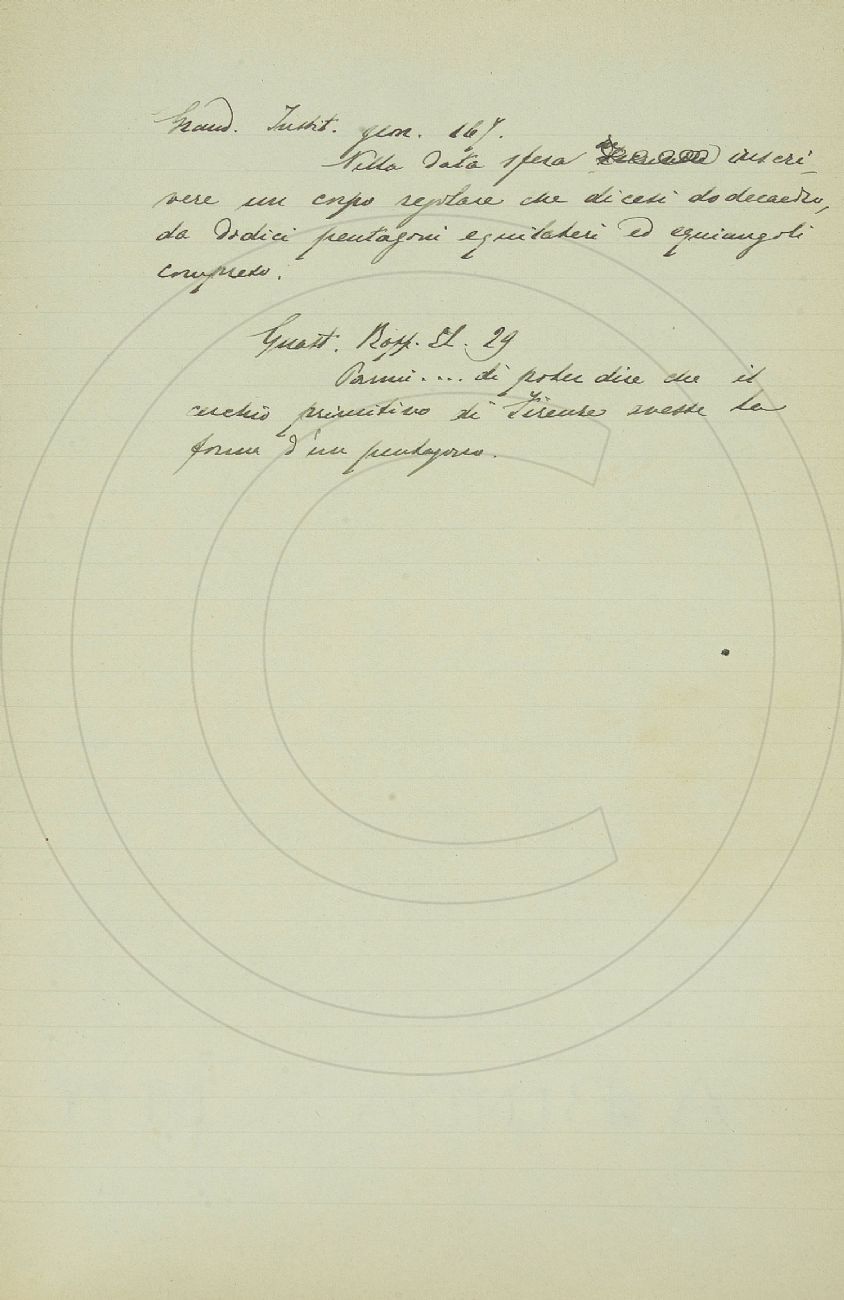 Grand. Instit. geom. 167.
Nella data sfera inscri-
vere un corpo regolare che dicesi dodecaedro,
da dodici pentagoni equilateri ed equiangoli
compreso.
Guast. Rapp. El. 29
Parmi.... di poter dire che il
cerchio primitivo di Firenze avesse la
forma d'un pentagono.